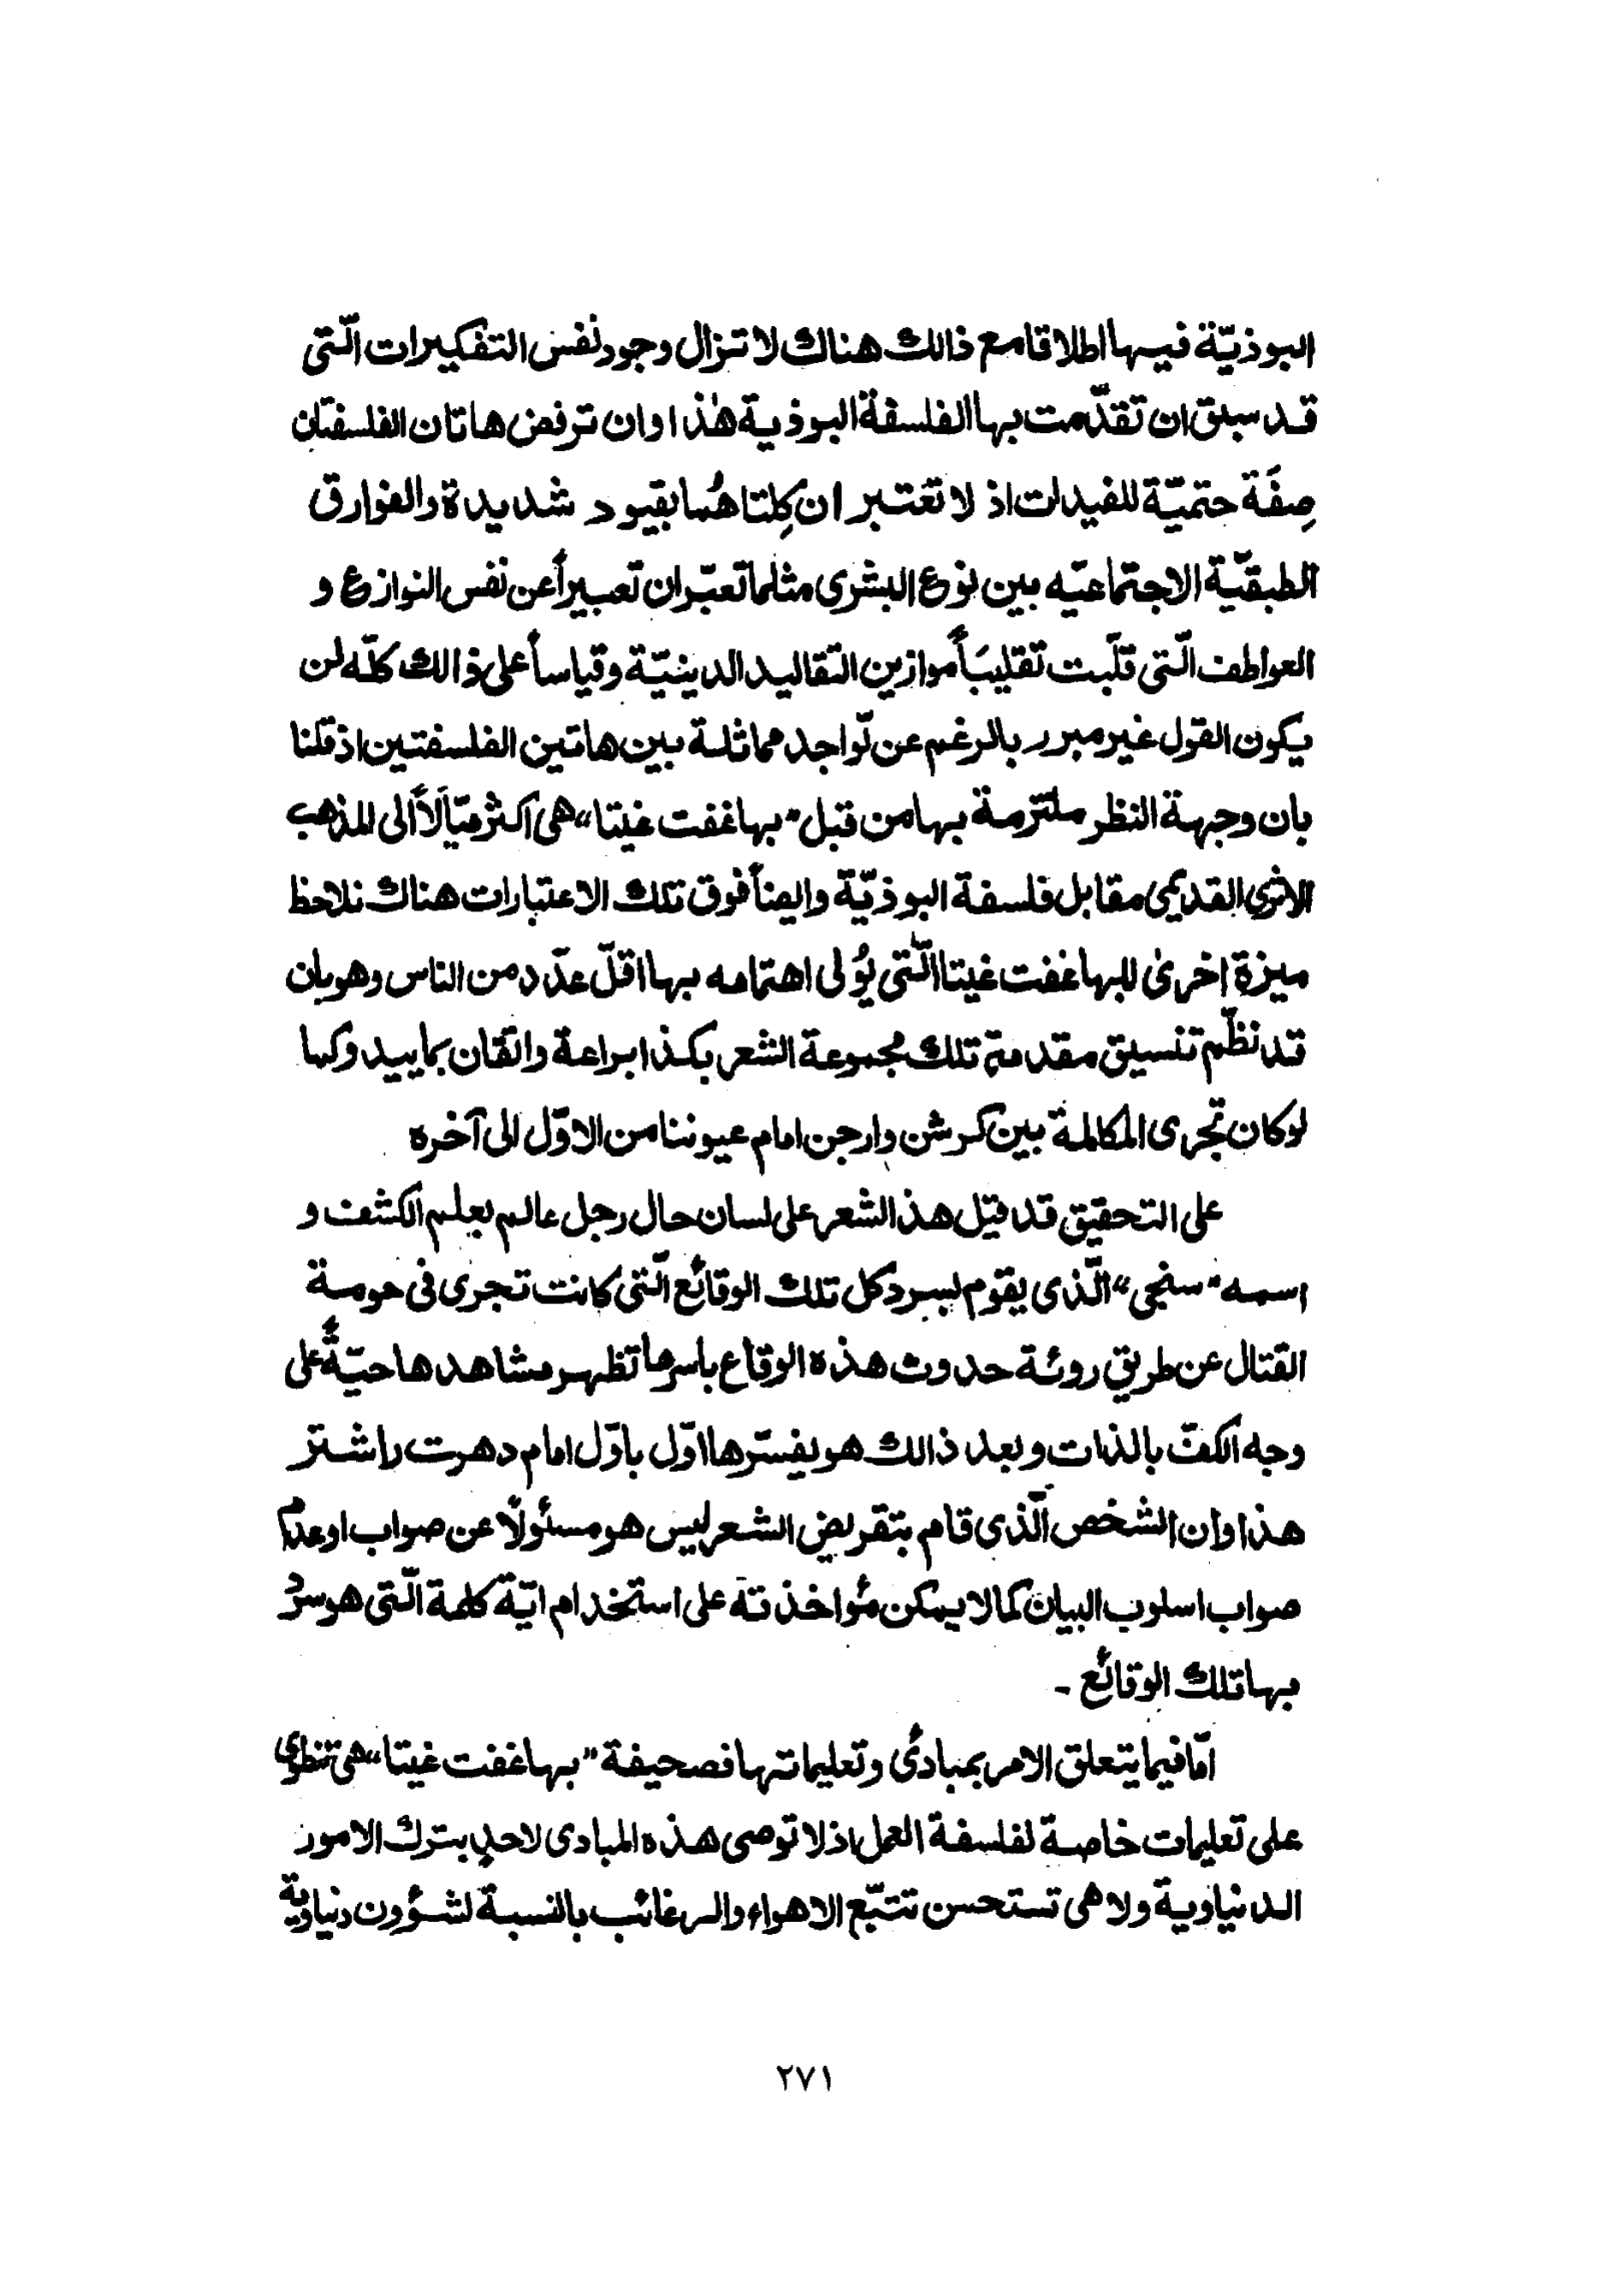 البوذيّة فيها اطلاقا مع ذالك هناك لا تزال وجود نفس التفكيرات الّتى
قد سبق ان تقدّمت بها الفلسفة البوذية هٰذا وان ترفض هاتان الفلسفتان
صِفَة حتميّة للفيدات اذ لا تعتبر ان كِلتا هُما بقيود شديدة والفوارق
الطبقيّة الاجتماعيّه بين نوع البشرى مثلما تعبّران تعبيراً عن نفس النوازع و
العواطف الّتى قلّبت تقليبَاً موازين التقاليد الدينيّة وقياساً على ذالك كلّه لن
يكون القول غير مبرر بالرغم عن تواجد مماثلة بين هاتين الفلسفتين اذ قلنا
بان وجهة النظر ملتزمة بها من قبل "بهاغفت غيتا" هى اكثر ميّالاً الى المذهب
الاثرى القديمى مقابل فلسفة البوذيّة وايضاً فوق تلك الاعتبارات هناك نلاحظ
ميزة اخرىٰ للبهاغفت غيتا الّتى يُولى اهتمامه بها اقلّ عدّد من الناس وهو بان
قد نظّم تنسيق مقدمةِ تلك مجموعة الشعر بكذا براعة واتقان بما يبدو كما
لو كان تجرى المكالمة بين كرشن وارجن امام عيوننا من الاوّل الى آخره
على التحقيق قد قيل هذ الشعر على لسان حال رجل عالم بعلم الكشف و
اسمه "سنجى" الّذى يقوم بسرد كل تلك الوقائع الّتى كانت تجرى فى حومة
القتال عن طريق روئة حدوث هذه الوقاع باسرها تظهر مشاهدها حيّةً على
وجه الكفّ بالذات وبعد ذالك هو يفسّرها اوّل باوّل امام دهرت راشتر
هذا وان الشخص الّذى قام بتقريض الشعر ليس هو مسئولاً عن صواب او عدم
صواب اسلوب البيان كما لا يمكن مُواخذتة على استخدام ايّة كلمة الّتى هو سرد
بها تلك الوقائع -
امّا فيما يتعلق الامر بمبادئ وتعليماتها فصحيفة "بهاغفت غيتا" هى تنطوى
على تعليمات خاصة لفلسفة العمل اذ لا توصى هذه المبادى لاحدٍ بترك الامور
الدنياوية ولا هى تستحسن تتبّع الاهواء والرغائب بالنسبة لشؤون دنياوية
٢٧١